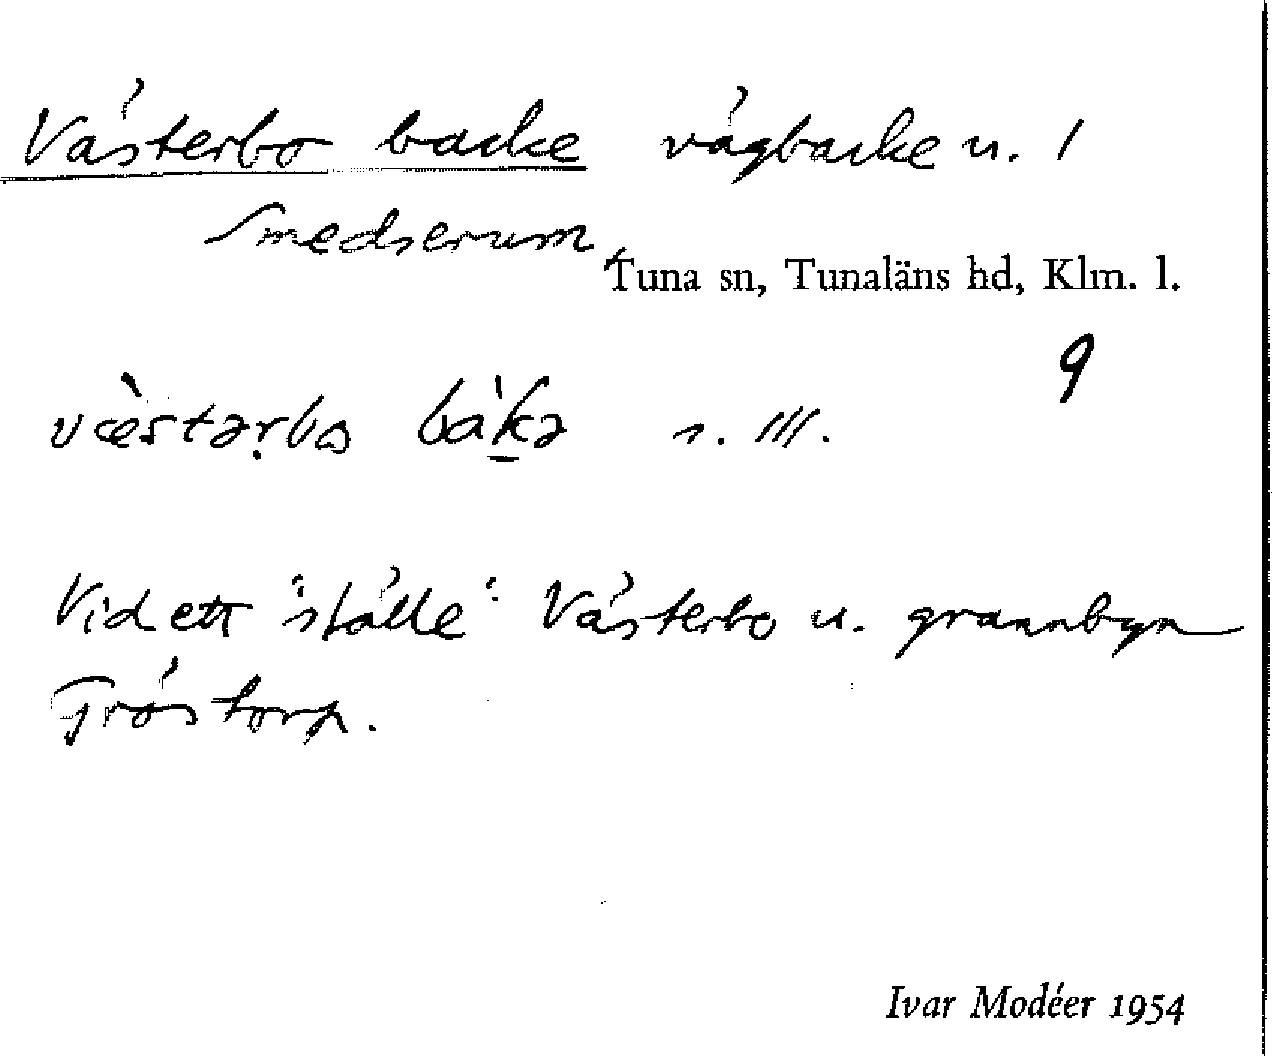 Västerbo backe vägbacke u. 1
Smedserum,
Tuna sn, Tunaläns hd, Klm. l.
9
væ̀stərbɷ bàkə s. III.
Vid ett "ställe" Västerbo u. grannbyn
Fröstorp.
Ivar Modéer 1954